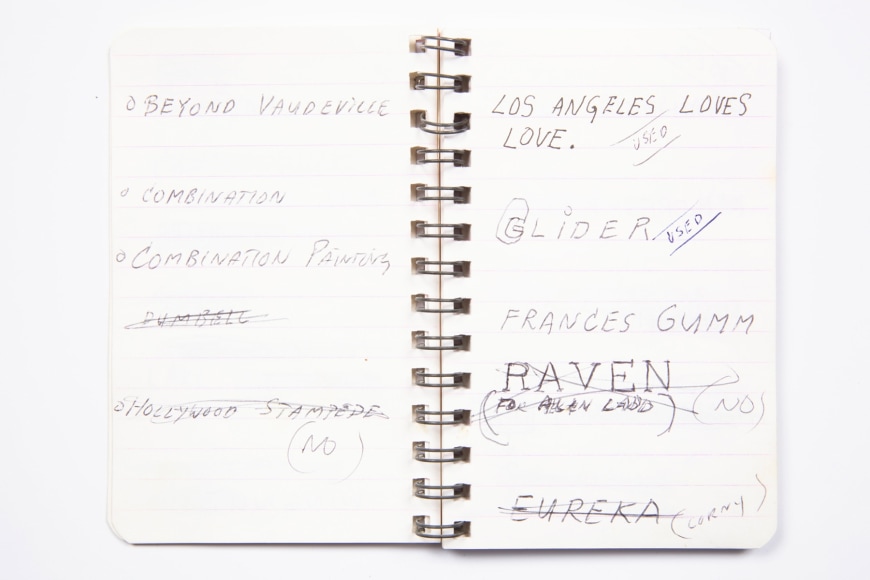 BEYOND VAUDEVILLE
COMBINATION
COMBINATION PAINTING
DUMBELL
HOLLYWOOD STAMPEDE
(NO)
LOS ANGELES LOVES
LOVE. USED
GLIDER USED
FRANCES GUMM
RAVEN
(FOR ALAN LADD) (NO)
EUREKA (CORNY)